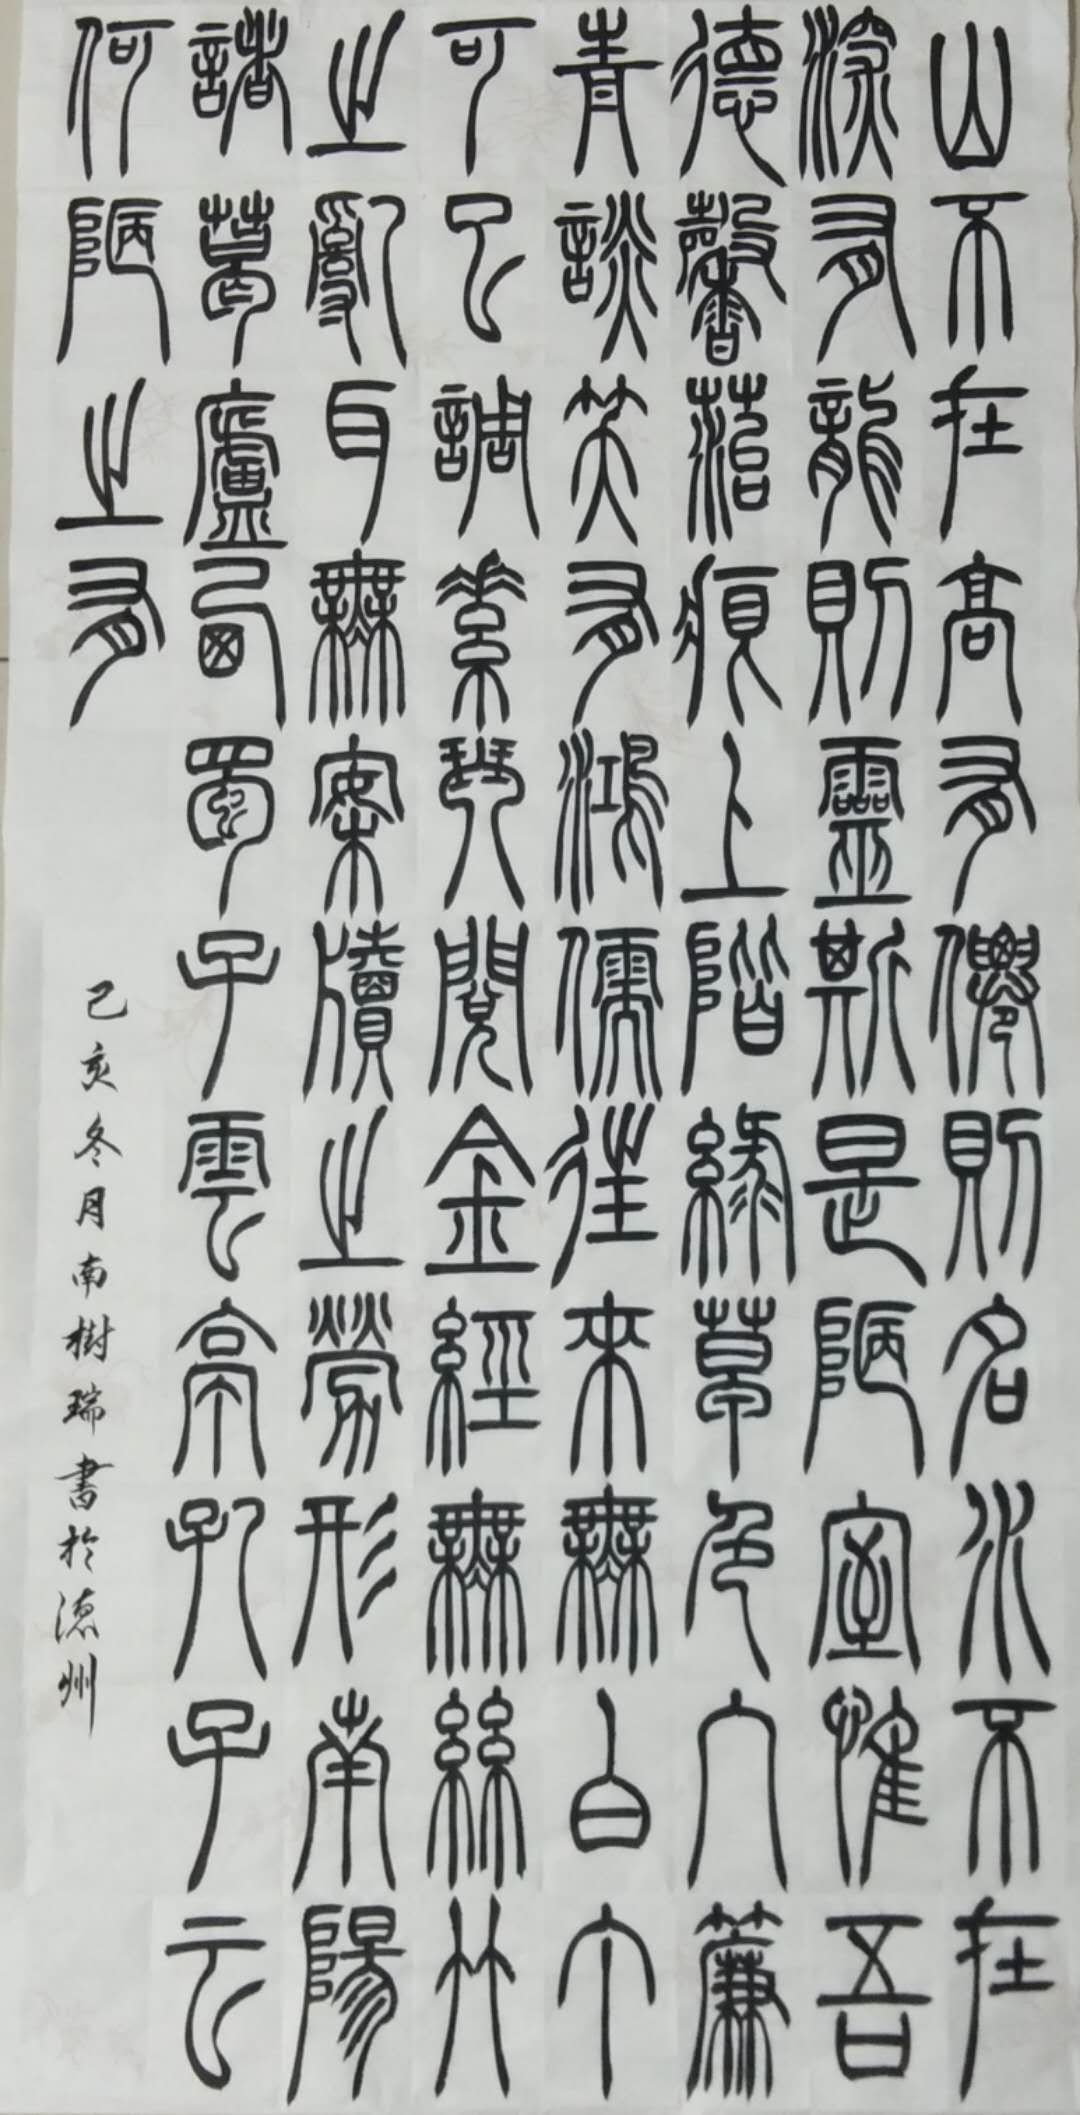 山不在高有僊則名水不在
深有龍則靈斯是陋室惟吾
德馨菭痕上階綠草色入簾
青談笑有鴻儒往來無白丁
可以調素琴閱金經無絲竹
之亂耳無案牘之勞形南陽
諸葛廬西蜀子雲亭孔子云
何陋之有
己亥冬月南樹瑞書於德州